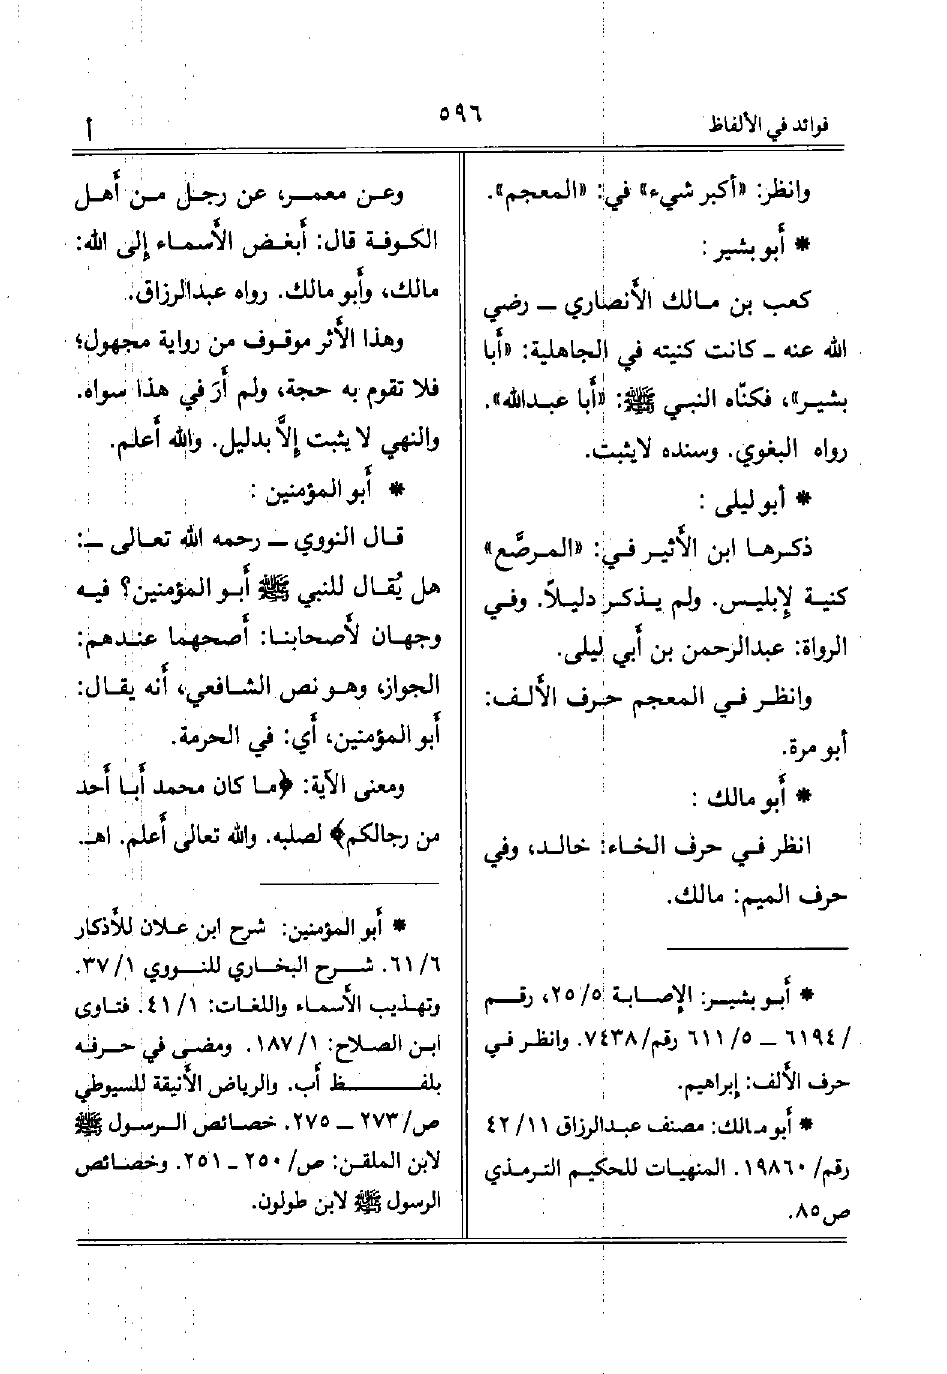 فوائد في الألفاظ
٥٩٦
أ
وانظر: «أكبر شيء» في: «المعجم».
* أبو بشير :
كعب بن مالك الأنصاري ــ رضي
الله عنه ــ كانت كنيته في الجاهلية: «أبا
بشير»، فكنّاه النبي ﷺ: «أبا عبدالله».
رواه البغوي. وسنده لا يثبت.
* أبو ليلى :
ذكرها ابن الأثير في: «المرصَّع»
كنية لإبليس. ولم يذكر دليلاً. وفي
الرواة: عبدالرحمن بن أبي ليلى.
وانظر في المعجم حرف الألف:
أبو مرة.
* أبو مالك :
انظر في حرف الخاء: خالد، وفي
حرف الميم: مالك.
* أبو بشير: الإصابة ٢٥/٥، رقم
/ ٦١٩٤ ــ ٦١١/٥ رقم/ ٧٤٣٨. وانظر في
حرف الألف: إبراهيم.
* أبو مالك: مصنف عبدالرزاق ٤٢/١١
رقم/ ١٩٨٦٠. المنهيات للحكيم الترمذي
ص ٨٥.
وعن معمر، عن رجل من أهل
الكوفة قال: أبغض الأسماء إلى الله:
مالك، وأبو مالك. رواه عبدالرزاق.
وهذا الأثر موقوف من رواية مجهول؛
فلا تقوم به حجة، ولم أرَ في هذا سواه.
والنهي لا يثبت إلاَّ بدليل. والله أعلم.
* أبو المؤمنين :
قال النووي ــ رحمه الله تعالى ــ:
هل يُقال للنبي ﷺ أبو المؤمنين؟ فيه
وجهان لأصحابنا: أصحهما عندهم:
الجواز، وهو نص الشافعي، أنه يقال:
أبو المؤمنين، أي: في الحرمة.
ومعنى الآية: ﴿ما كان محمد أبا أحد
من رجالكم﴾ لصلبه. والله تعالى أعلم. اهـ.
* أبو المؤمنين: شرح ابن علان للأذكار
٦١/٦. شرح البخاري للنووي ٣٧/١.
وتهذيب الأسماء واللغات: ٤١/١. فتاوى
ابن الصلاح: ١٨٧/١. ومضى في حرفه
بلفظ أب. والرياض الأنيقة للسيوطي
ص/ ٢٧٣ ــ ٢٧٥. خصائص الرسول ﷺ
لابن الملقن: ص/ ٢٥٠ ــ ٢٥١. وخصائص
الرسول ﷺ لابن طولون.